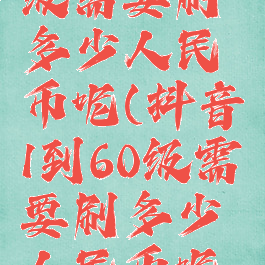 级需要刷
多少人民
币呢(抖音
1到60级需
要刷多少
人民币呢